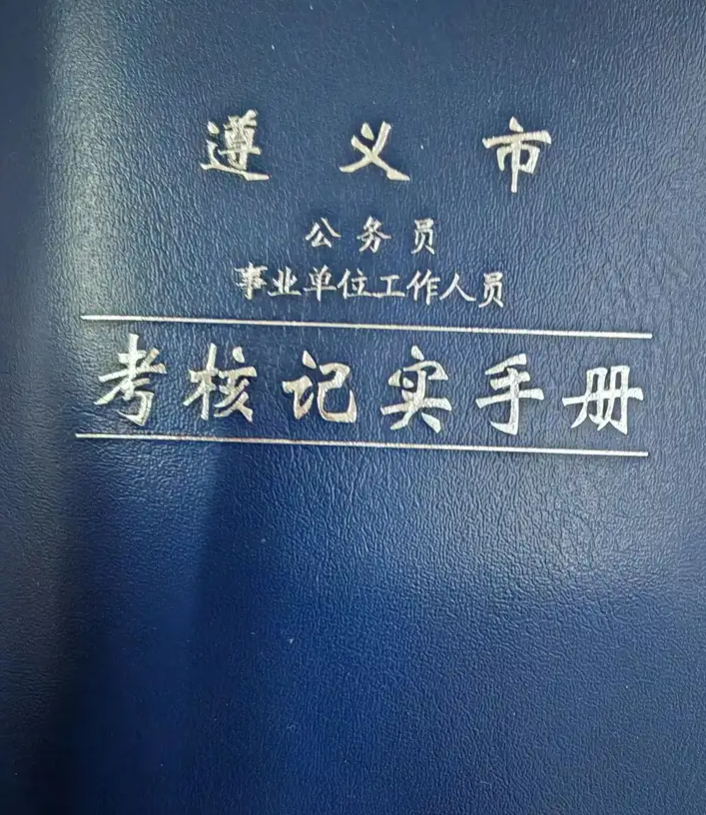 遵义市
公务员
事业单位工作人员
考核记实手册